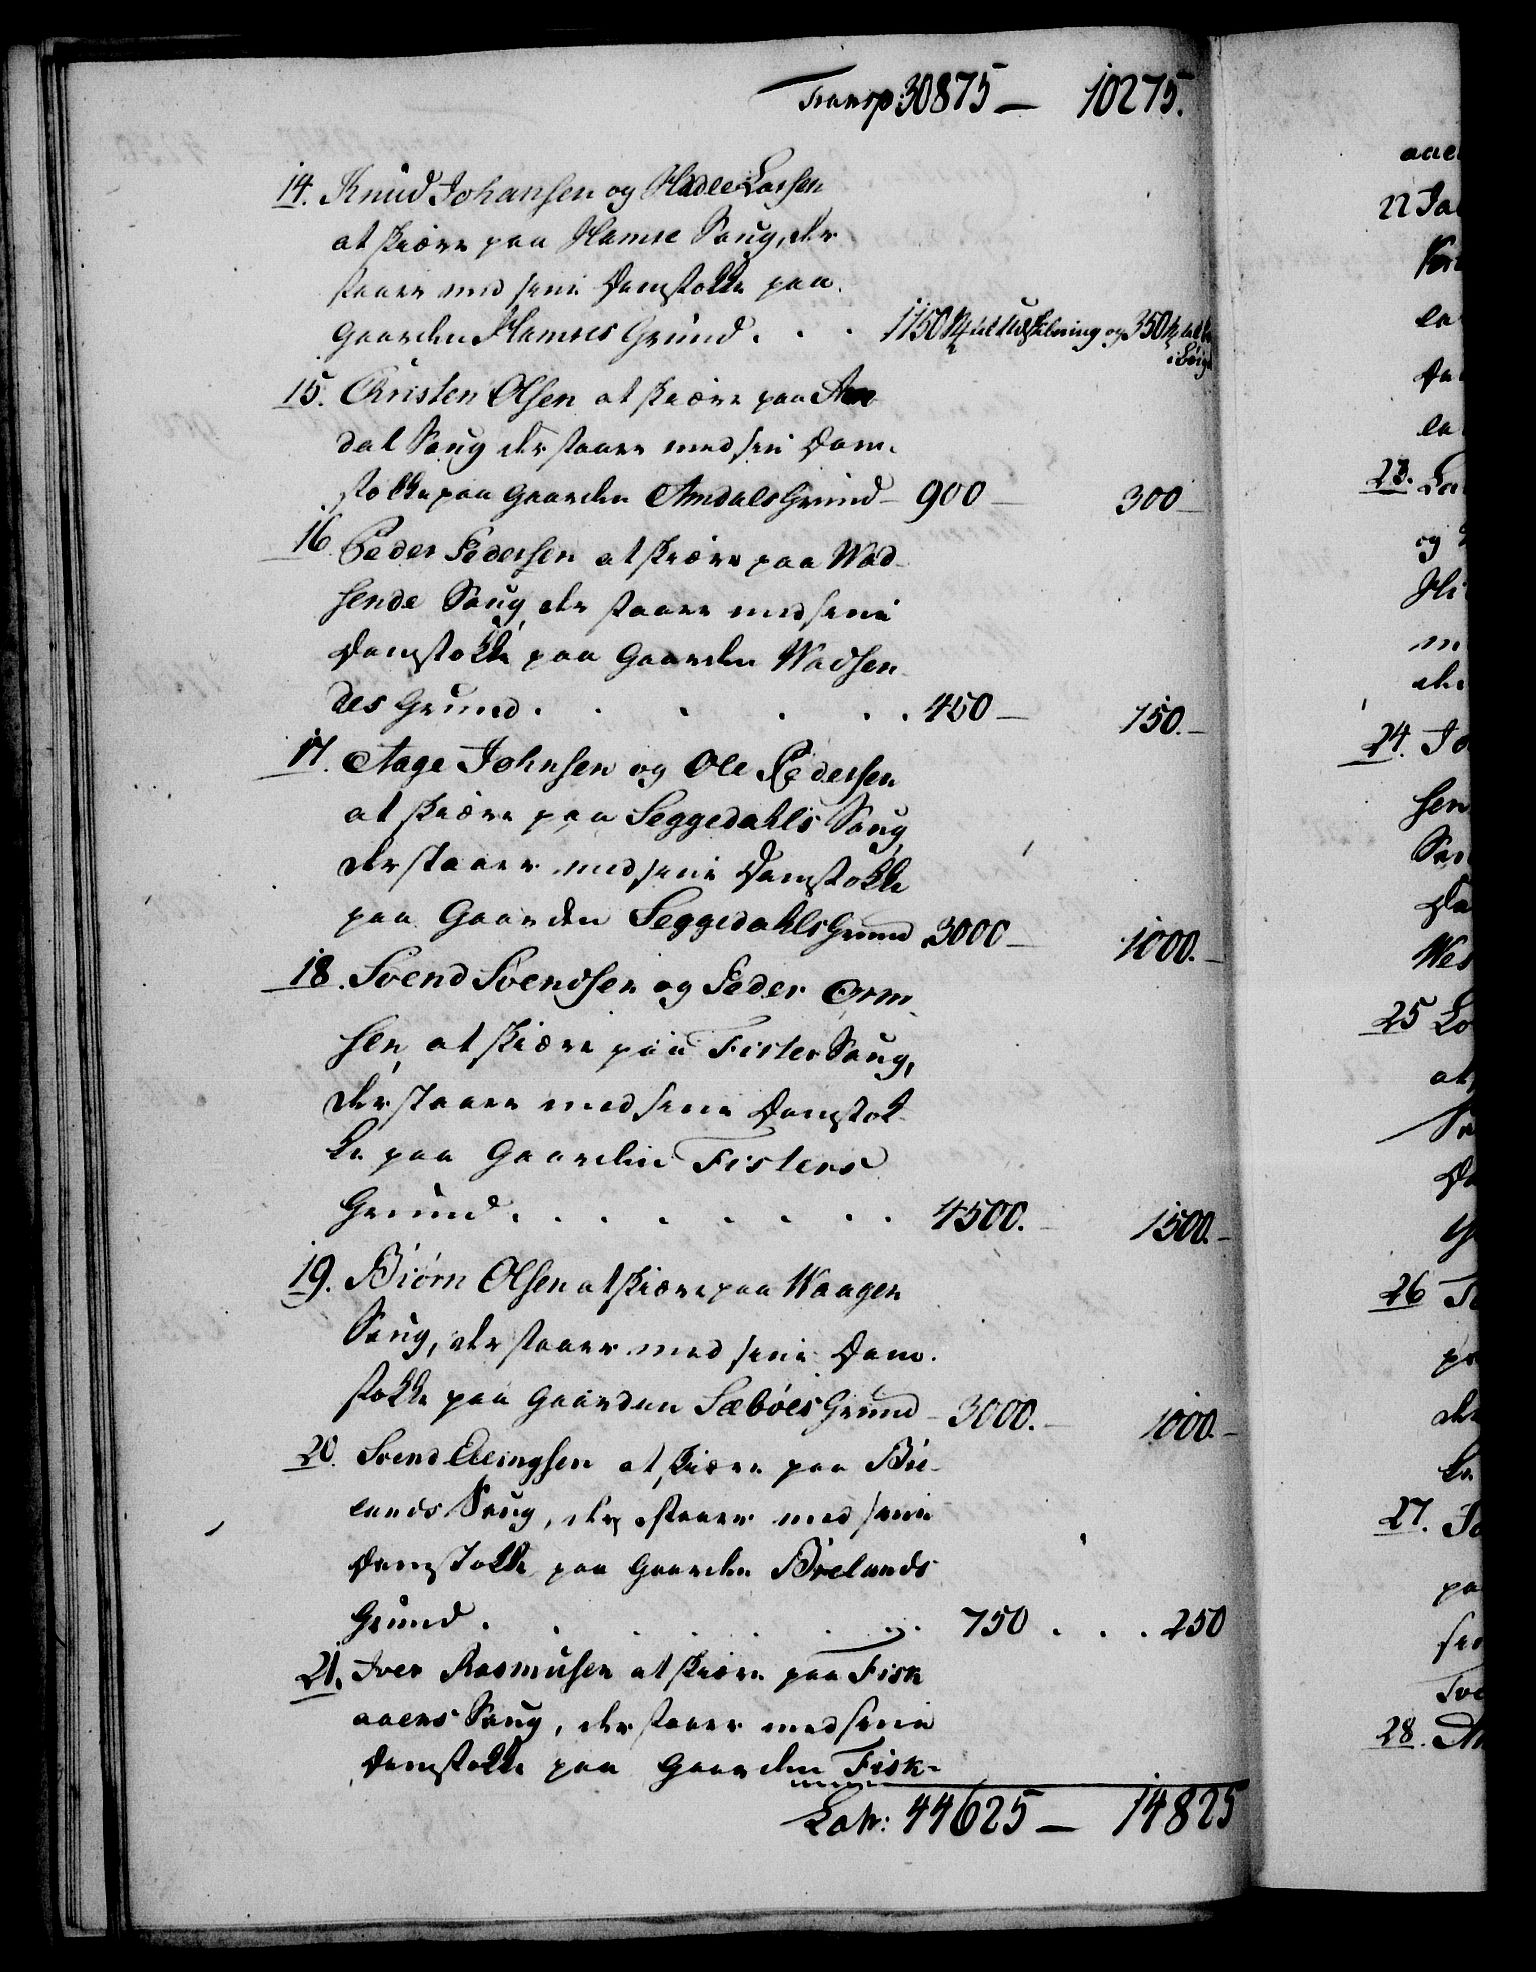 Transp 30875 — 10275.
14. Knud Johansen og Hadle Larsen
at skiære paa Hamre Saug, der
staaer med sine Damstokke paa
Gaarden Hamres Grund . . . 1150 til Udskibning og 350
15. Christen Olsen at skiære paa Am
dal Saug der staaer med sin Dam-
stokke paa Gaarden Amdals Grund - 900 — 300 —
16 Peder Pedersen at skiære paa Wad-
sende Saug, der staaer med sine
Damstokke paa Gaarden Wadsen-
des Grund . . . . . . 450 — 150. —
17. Aage Johnsen og Ole Pedersen
at skiære paa Seggedahls Saug
der staaer med sine Damstokke
paa Gaarden Seggedahls Grund 3000 — 1000. —
18. Svend Svendsen og Peder Orm-
sen, at skiære paa Fister Saug,
der staaer med sine Damstok-
ke paa Gaarden Fisters
Grund . . . . . . . . 4500. — 1500. —
19. Biørn Olsen at skiære paa Waagen
Saug, der staaer med sine Dam-
stokke paa Gaarden Sæbøes Grund - 3000. — 1000. —
20. Svend at skiære paa Bie-
lands Saug, der staaer med sine
Damstokke paa Gaarden Bielands
Grund . . . . . . . 750 . . . 250
21. Iver Rasmusen at skiære paa Fisk
aaens Saug, der staaer med sine
Damstokke paa Gaarden Fisk-
Latr: 44625 — 14825
22
23.
og
24.
sen
25
26
27.
28.